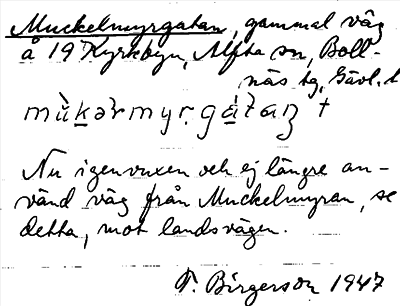 Muckelmyrgatan, gammal väg
å 19 Kyrkbyn, Alfta sn, Boll-
näs tg, Gävl. l
mùkər̀myr̥gátaṇ +
Nu igenvuxen och ej längre an-
vänd väg från Muckelmyran, se
detta, mot landsvägen.
F. Birgerson 1947